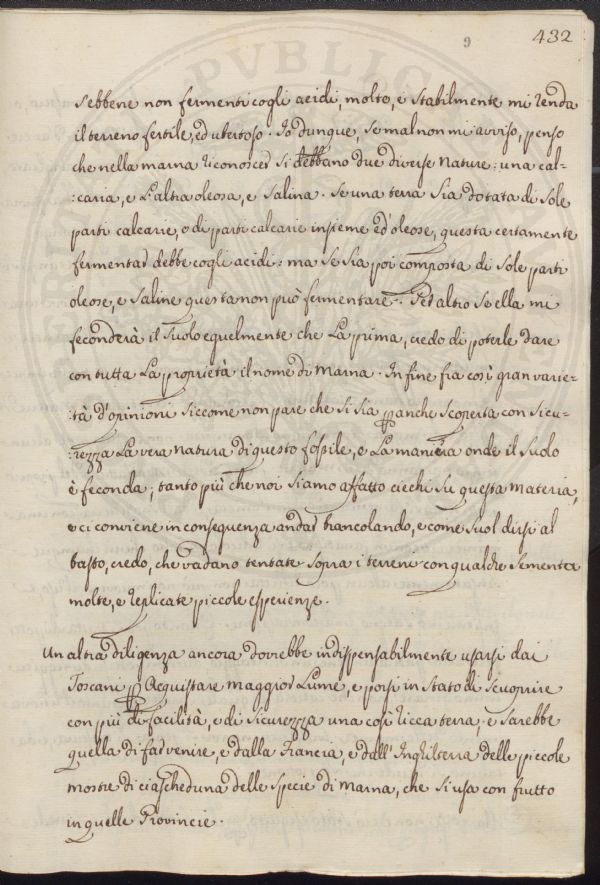 9
432
sebbene non fermenti cogli acidi, molto, e stabilmente mi renda
il terreno fertile, ed ubertoso. Io dunque, se mal non mi avviso, penso
che nella marna riconoscer si debbano due diverse nature: una cal-
:caria, e l'altra oleosa, e salina. Se una terra sia dotata di sole
parti calcarie, o di parti calcarie insieme ed oleose, questa certamente
fermentar debbe cogli acidi: ma se sia poi composta di sole parti
oleose, e saline questa non può fermentare. Per altro se ella mi
feconderà il suolo egualmente che la prima, credo di poterle dare
con tutta la proprietà il nome di Marna. In fine fra così gran varie-
:tà d'opinioni siccome non pare che si sia per anche scoperta con sicu-
:rezza la vera natura di questo fossile, e la maniera onde il suolo
è feconda; tanto più che noi siamo affatto ciechi su questa materia,
e ci conviene in conseguenza andar brancolando, e come suol dirsi al
tasto, credo, che vadano tentate sopra i terreni con qualche sementa
molte, e replicate piccole esperienze.
Un altra diligenza ancora dovrebbe indispensabilmente usarsi dai
Toscani per acquistare maggior lume, e porsi in stato di scuoprire
con più di facilità, e di sicurezza una così ricca terra, e sarebbe
quella di far venire, e dalla Francia, e dall'Inghilterra delle piccole
mostre di ciascheduna delle specie di Marna, che si usa con frutto
in quelle Provincie.